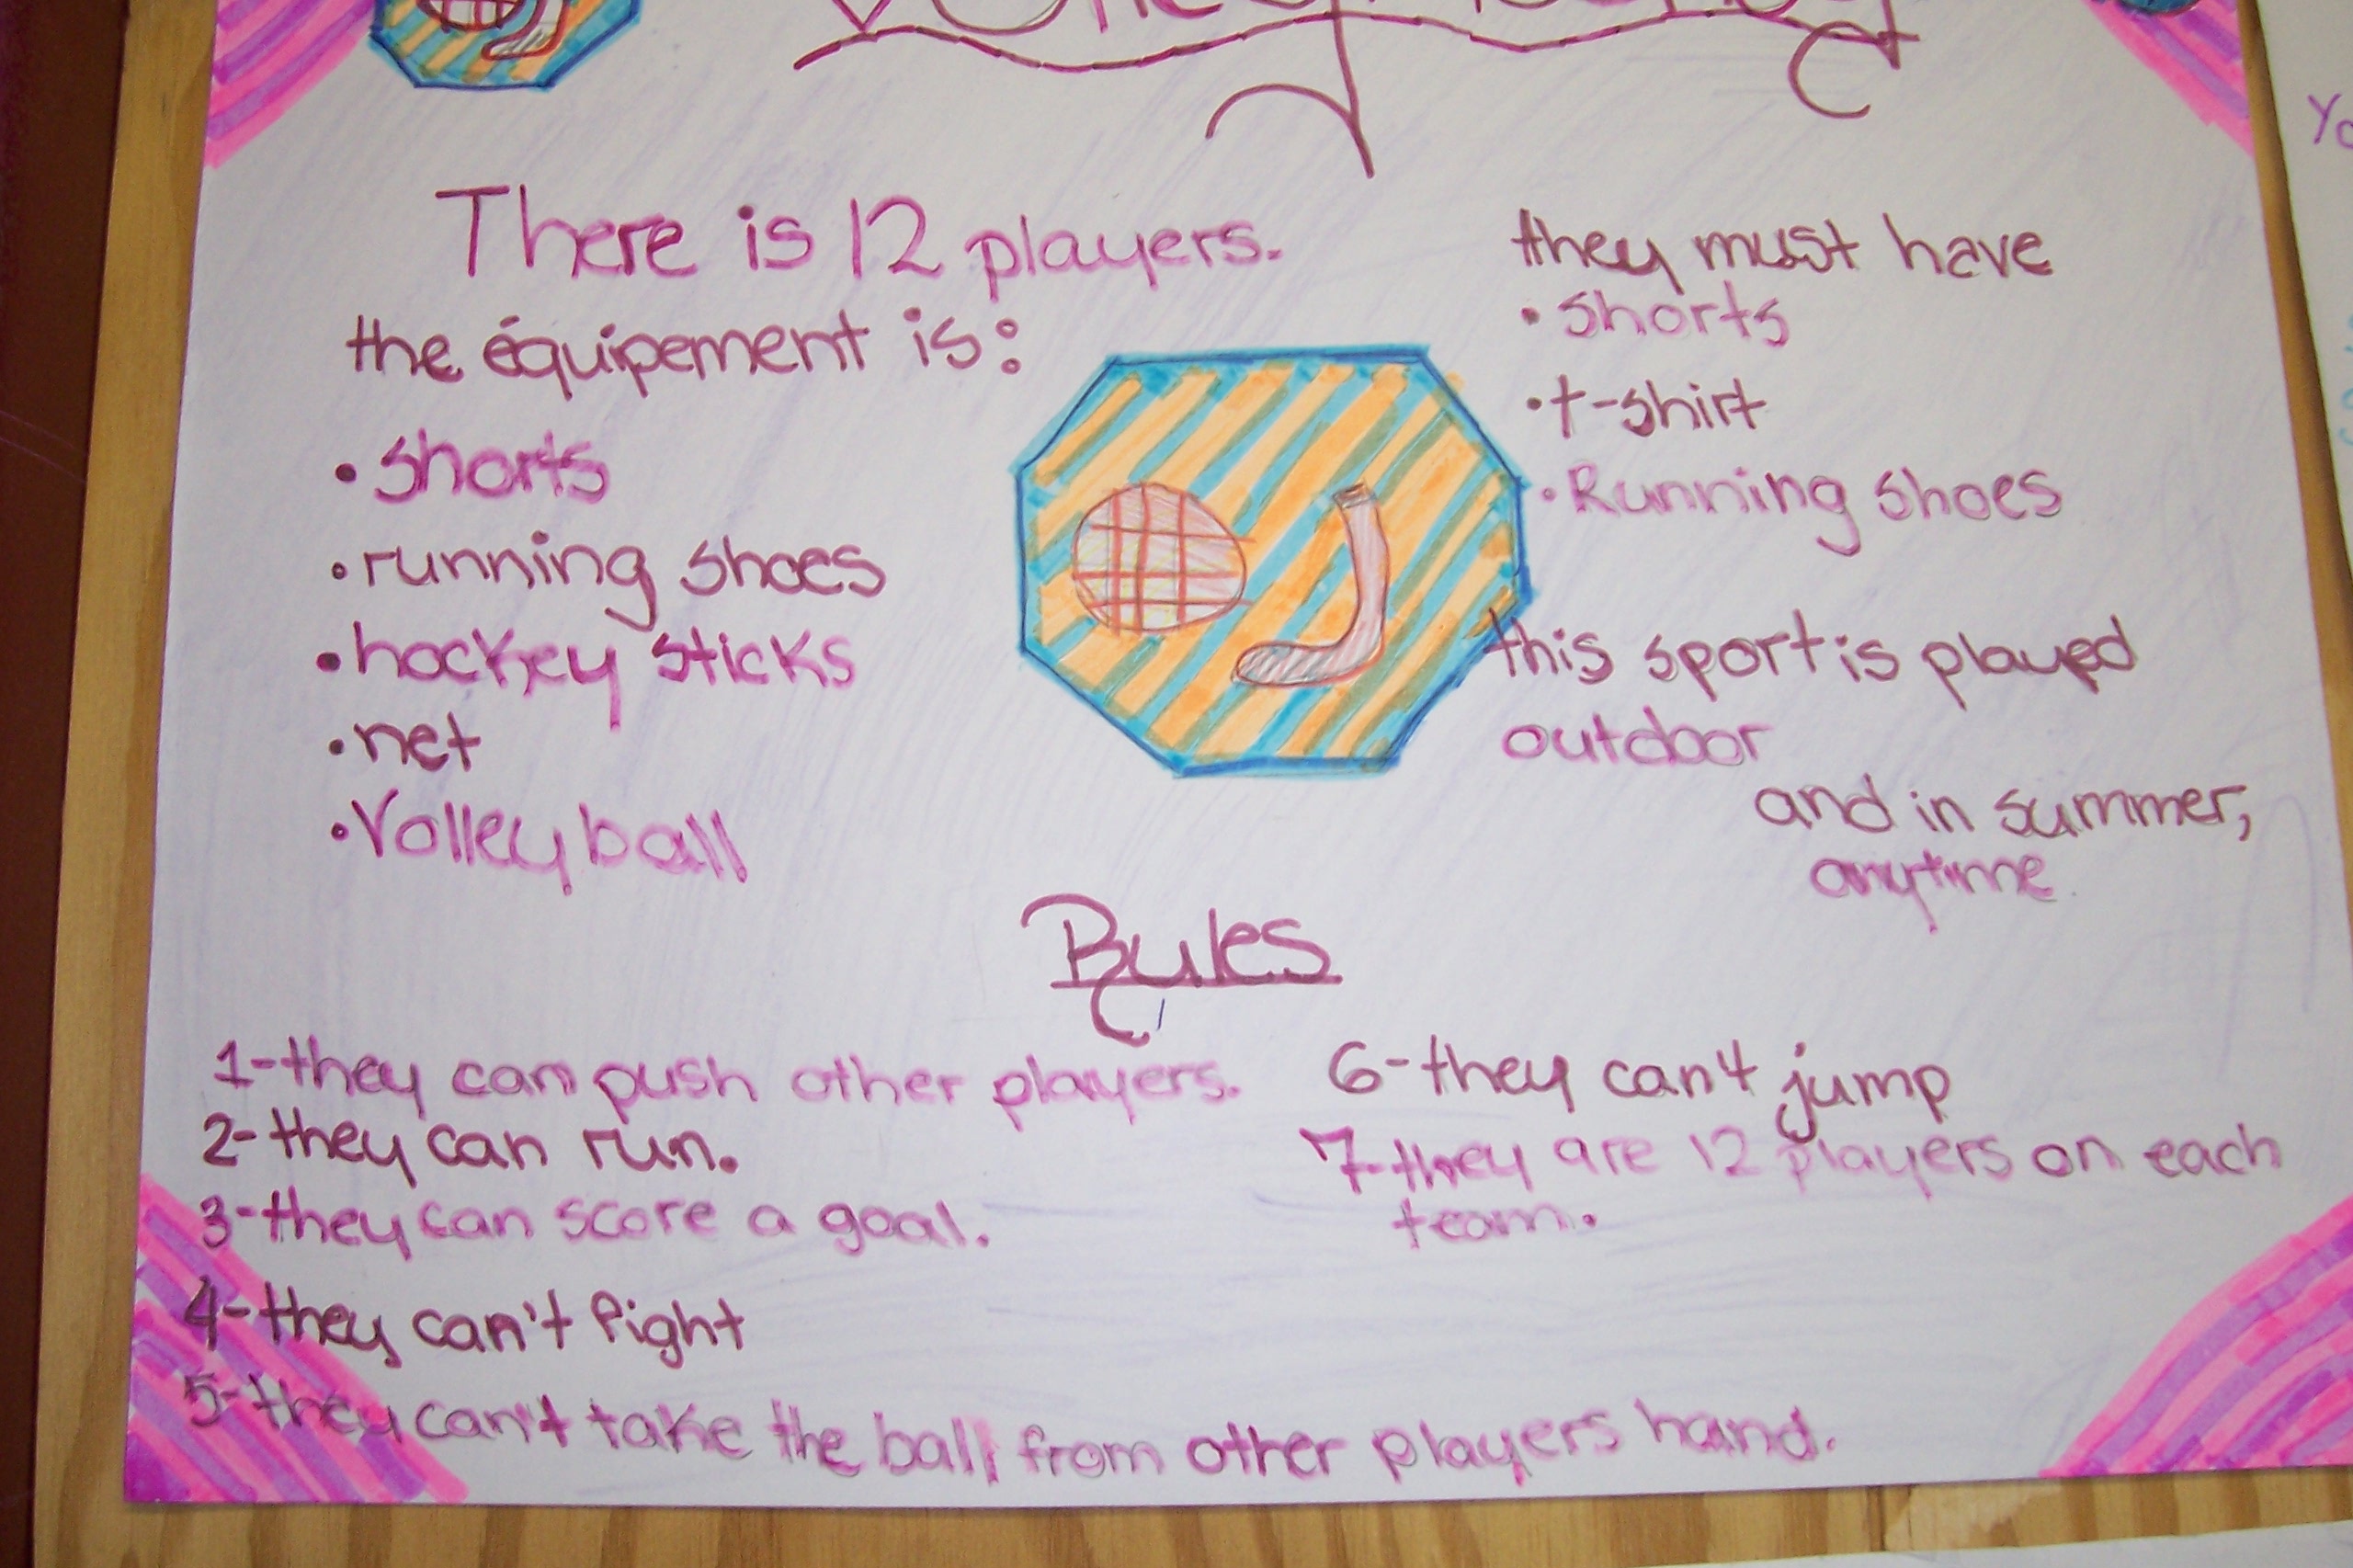 There is 12 players.
the équipement is:
• shorts
• running shoes
• hockey sticks
• net
• Volley ball
they must have
• shorts
• t-shirt
• Running shoes
this sport is played
outdoor
and in summer,
anytime
Rules
1-they can push other players.
2-they can run.
3-they can score a goal.
4-they can't fight
5-they can't take the ball from other players hand.
6-they can't jump
7-they are 12 players on each
team.